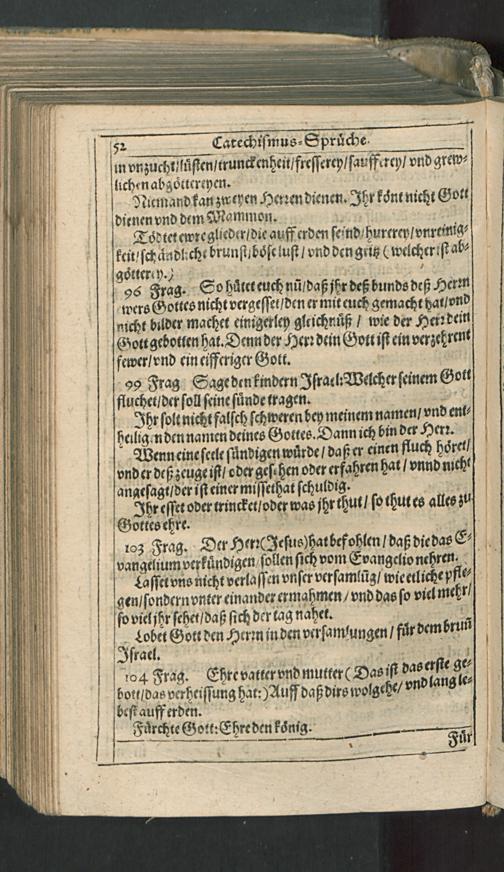 52 Catechismus-Sprüche.
in vnzucht/lüsten/trunckenheit/fresserey/saufferey/ vnd grew-
lichen abgöttereyen.
Niemand kan zweyen Herren dienen. Ihr könt nicht Gott
dienen vnd dem Mammon.
Tödtet ewre glieder/die auff erden seind/hurerey/vnreinig-
keit/schändliche brunst/böse lust/ vnd den geitz (welcher ist ab-
götterey.)
96 Frag. So hütet euch nū/daß jhr deß bunds deß Herrn
ewers Gottes nicht vergesset/den er mit euch gemacht hat/vnd
nicht bilder machet einigerley gleichnüß / wie der Herr dein
Gott gebotten hat. Denn der Herr dein Gott ist ein verzehrent
fewer/vnd ein eifferiger Gott.
99 Frag Sage den kindern Israel: Welcher seinem Gott
fluchet/der soll seine sünde tragen.
Ihr solt nicht falsch schweren bey meinem namen/ vnd ent-
heiligen den namen deines Gottes. Dann ich bin der Herr.
Wenn eine seele sündigen würde/ daß er einen fluch höret/
vnd er deß zeuge ist/ oder gesehen oder erfahren hat / vnnd nicht
angesagt/der ist einer missethat schuldig.
Ihr esset oder trincket/oder was jhr thut/ so thut es alles zu
Gottes ehre.
103 Frag. Der Herr (Jesus) hat befohlen/ daß die das E-
vangelium verkündigen/sollen sich vom Evangelio nehren.
Lasset vns nicht verlassen vnser versamlūg/ wie etliche pfle-
gen/sondern vnter einander ermahnen/ vnd das so viel mehr/
so viel jhr sehet/daß sich der tag nahet.
Lobet Gott den Herrn in den versamlungen/ für dem bruñ
Israel.
104 Frag. Ehre vatter vnd mutter (Das ist das erste ge-
bott/das verheissung hat:) Auff daß dirs wolgehe/ vnd lang le-
best auff erden.
Fürchte Gott: Ehre den könig.
Für